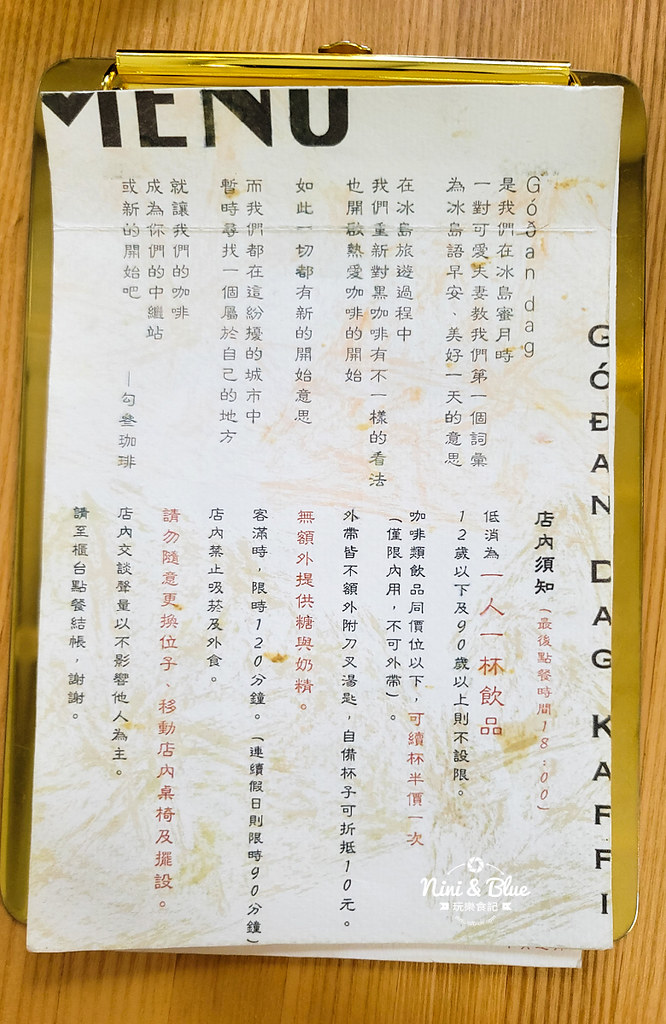 MENU
GÓÐAN DAG KAFFI
Góðan dag
是我們在冰島蜜月時
一對可愛夫妻教我們第一個詞彙
為冰島語早安、美好一天的意思
在冰島旅遊過程中
我們重新對黑咖啡有不一樣的看法
也開啟熱愛咖啡的開始
如此一切都有新的開始意思
而我們都在這紛擾的城市中
暫時尋找一個屬於自己的地方
就讓我們的咖啡
成為你們的中繼站
或新的開始吧
—勾叁珈琲
店內須知(最後點餐時間18:00)
低消為一人一杯飲品
12歲以下及90歲以上則不設限。
咖啡類飲品同價位以下,可續杯半價一次
(僅限內用,不可外帶)。
外帶皆不額外附刀叉湯匙,自備杯子可折抵10元。
無額外提供糖與奶精。
客滿時,限時120分鐘。(連續假日則限時90分鐘)
店內禁止吸菸及外食。
請勿隨意更換位子、移動店內桌椅及擺設。
店內交談聲量以不影響他人為主。
請至櫃台點餐結帳,謝謝。
Nini & Blue
玩樂食記